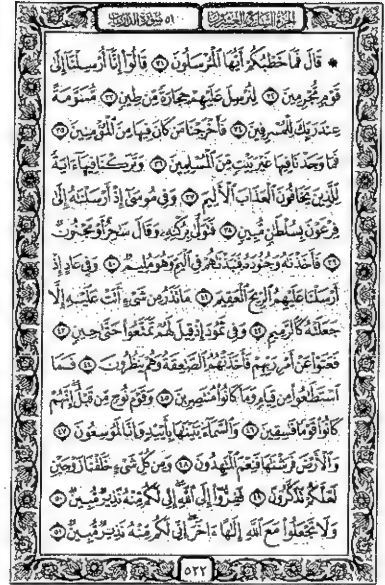 الجزء السابع والعشرون ٥١ سورة الذاريات
۞ قَالَ فَمَا خَطْبُكُمْ أَيُّهَا ٱلْمُرْسَلُونَ ٣١ قَالُوٓا۟ إِنَّآ أُرْسِلْنَآ إِلَىٰ
قَوْمٍ مُّجْرِمِينَ ٣٢ لِنُرْسِلَ عَلَيْهِمْ حِجَارَةً مِّن طِينٍ ٣٣ مُّسَوَّمَةً
عِندَ رَبِّكَ لِلْمُسْرِفِينَ ٣٤ فَأَخْرَجْنَا مَن كَانَ فِيهَا مِنَ ٱلْمُؤْمِنِينَ ٣٥
فَمَا وَجَدْنَا فِيهَا غَيْرَ بَيْتٍ مِّنَ ٱلْمُسْلِمِينَ ٣٦ وَتَرَكْنَا فِيهَآ ءَايَةً
لِّلَّذِينَ يَخَافُونَ ٱلْعَذَابَ ٱلْأَلِيمَ ٣٧ وَفِى مُوسَىٰٓ إِذْ أَرْسَلْنَٰهُ إِلَىٰ
فِرْعَوْنَ بِسُلْطَٰنٍ مُّبِينٍ ٣٨ فَتَوَلَّىٰ بِرُكْنِهِۦ وَقَالَ سَٰحِرٌ أَوْ مَجْنُونٌ
٣٩ فَأَخَذْنَٰهُ وَجُنُودَهُۥ فَنَبَذْنَٰهُمْ فِى ٱلْيَمِّ وَهُوَ مُلِيمٌ ٤٠ وَفِى عَادٍ إِذْ
أَرْسَلْنَا عَلَيْهِمُ ٱلرِّيحَ ٱلْعَقِيمَ ٤١ مَا تَذَرُ مِن شَىْءٍ أَتَتْ عَلَيْهِ إِلَّا
جَعَلَتْهُ كَٱلرَّمِيمِ ٤٢ وَفِى ثَمُودَ إِذْ قِيلَ لَهُمْ تَمَتَّعُوا۟ حَتَّىٰ حِينٍ ٤٣
فَعَتَوْا۟ عَنْ أَمْرِ رَبِّهِمْ فَأَخَذَتْهُمُ ٱلصَّٰعِقَةُ وَهُمْ يَنظُرُونَ ٤٤ فَمَا
ٱسْتَطَٰعُوا۟ مِن قِيَامٍ وَمَا كَانُوا۟ مُنتَصِرِينَ ٤٥ وَقَوْمَ نُوحٍ مِّن قَبْلُ إِنَّهُمْ
كَانُوا۟ قَوْمًا فَٰسِقِينَ ٤٦ وَٱلسَّمَآءَ بَنَيْنَٰهَا بِأَيْي۟دٍ وَإِنَّا لَمُوسِعُونَ ٤٧
وَٱلْأَرْضَ فَرَشْنَٰهَا فَنِعْمَ ٱلْمَٰهِدُونَ ٤٨ وَمِن كُلِّ شَىْءٍ خَلَقْنَا زَوْجَيْنِ
لَعَلَّكُمْ تَذَكَّرُونَ ٤٩ فَفِرُّوٓا۟ إِلَى ٱللَّهِ إِنِّى لَكُم مِّنْهُ نَذِيرٌ مُّبِينٌ ٥٠
وَلَا تَجْعَلُوا۟ مَعَ ٱللَّهِ إِلَٰهًا ءَاخَرَ إِنِّى لَكُم مِّنْهُ نَذِيرٌ مُّبِينٌ ٥١
٥٢٢